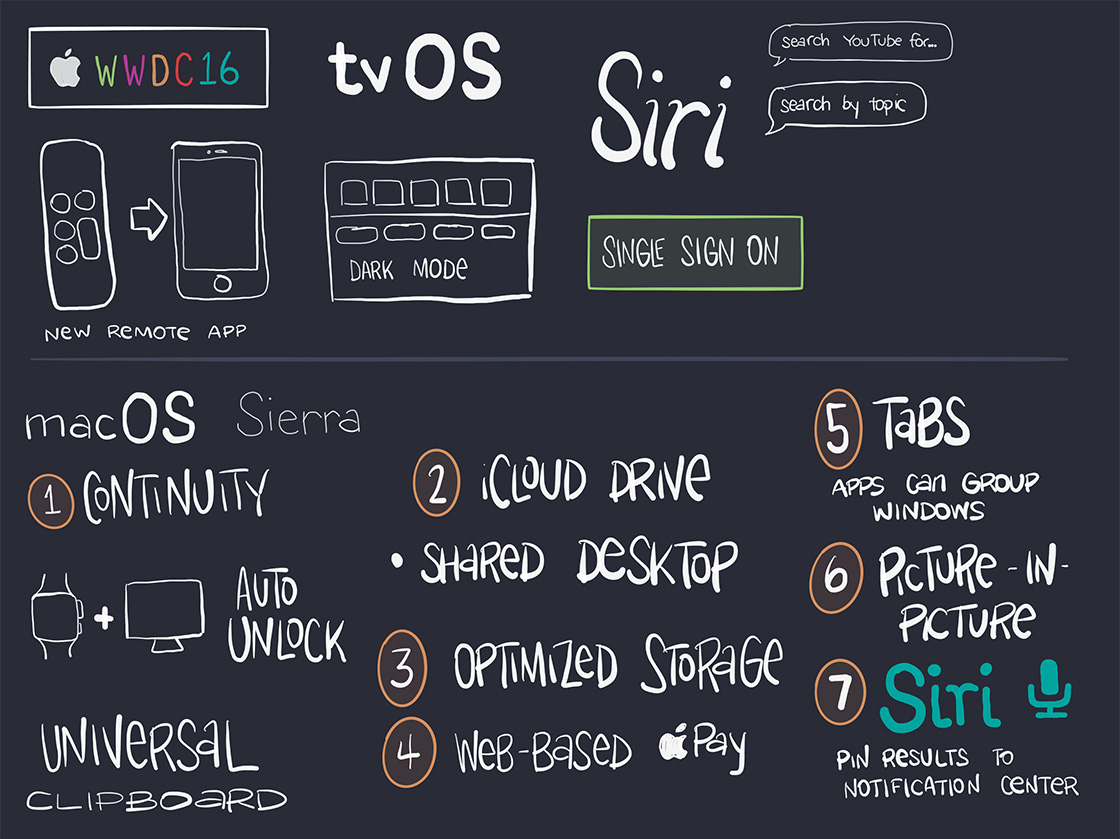 WWDC16
tvOS
Siri
search YouTube for...
search by topic
NEW REMOTE APP
DARK MODE
SINGLE SIGN ON
macOS Sierra
1 CONTINUITY
AUTO
UNLOCK
UNIVERSAL
CLIPBOARD
2 iCLOUD DRIVE
• SHARED DESKTOP
3 OPTIMIZED STORAGE
4 WEB-BASED Pay
5 TABS
APPS CAN GROUP
WINDOWS
6 PICTURE-IN-
PICTURE
7 Siri
PIN RESULTS TO
NOTIFICATION CENTER